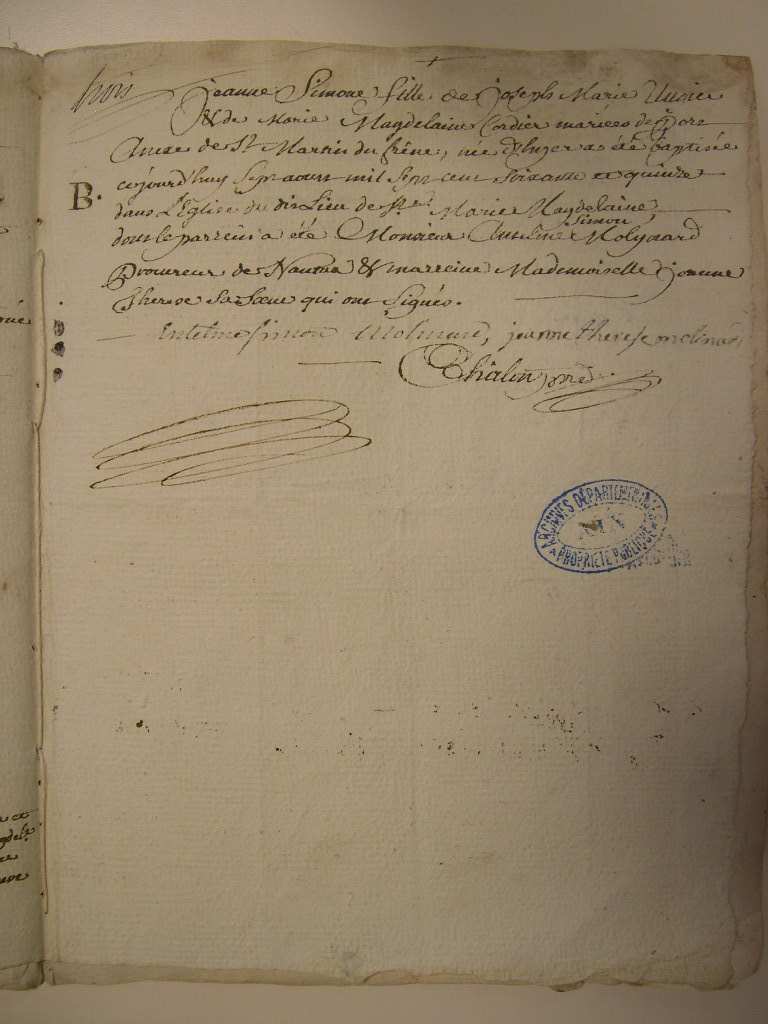 trois
Jeanne Simone fille de Joseph Marie
& de Marie Magdelaine Cordier mariés de
de St Martin du frêne, née d'hyer a été Baptisée
B.
cejourd'huy sept aoust mil sept cent soixante et quinze
dans L'Eglise du dis Lieu de Ste Marie Magdelaine
simon
dont le parrein a été Monsieur Antelme
Procureur de Nantua & marreine Mademoiselle jeanne
Therese Sa Sœur qui ont Signés.
Antelme simon Molinard, jeanne therese molinard
Chalon
ARCHIVES DÉPARTEMENTALES
AIN
PROPRIÉTÉ PUBLIQUE